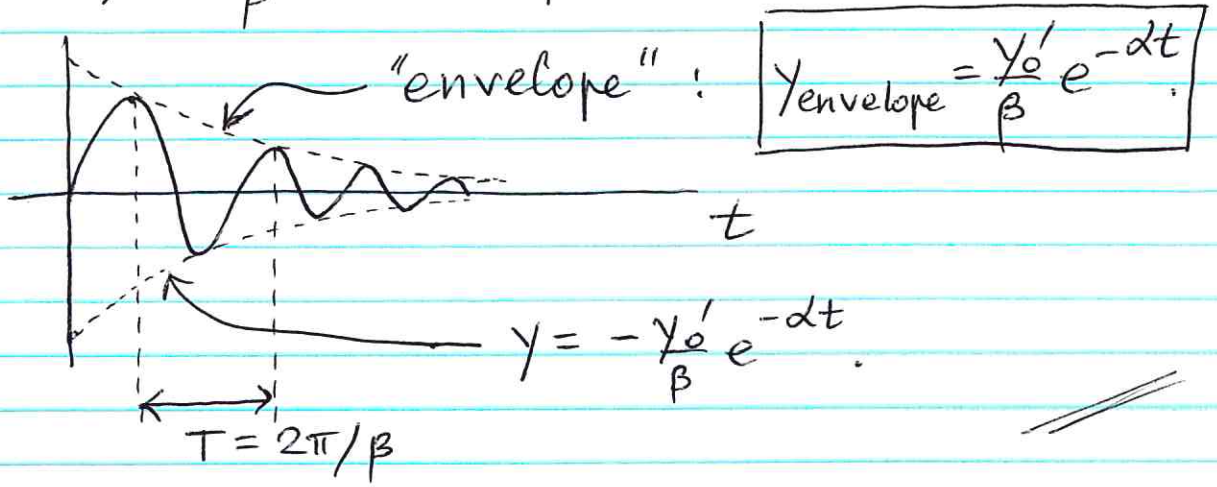 "envelope" : y_envelope = y₀'/β e^{-αt}.
t
y = - y₀'/β e^{-αt}.
T = 2π/β